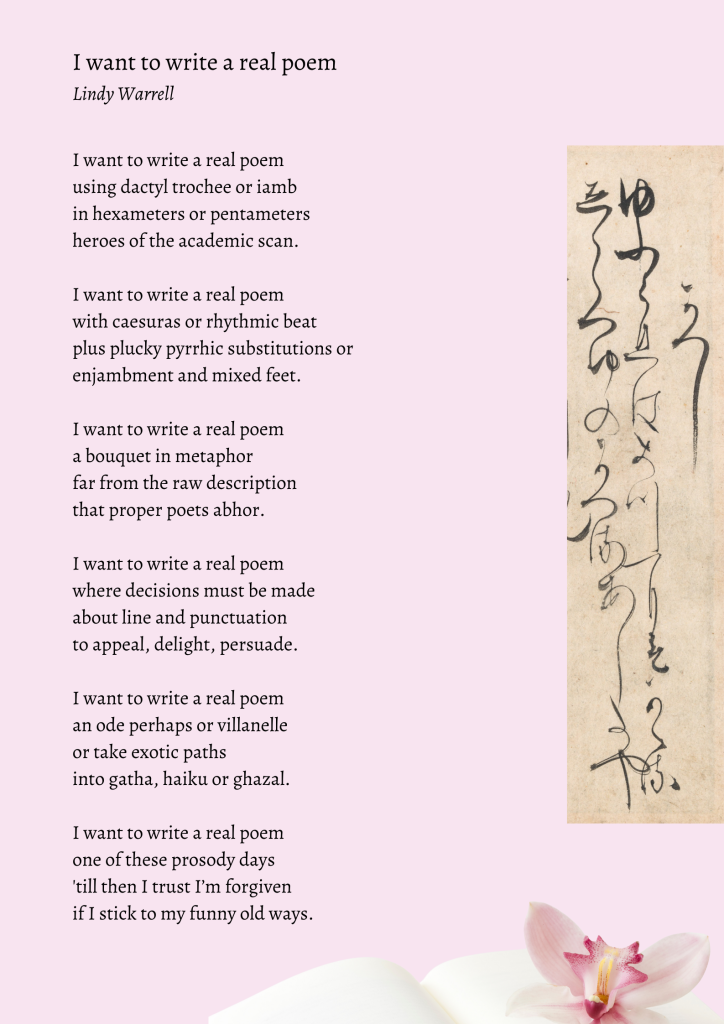 I want to write a real poem
Lindy Warrell
I want to write a real poem
using dactyl trochee or iamb
in hexameters or pentameters
heroes of the academic scan.
I want to write a real poem
with caesuras or rhythmic beat
plus plucky pyrrhic substitutions or
enjambment and mixed feet.
I want to write a real poem
a bouquet in metaphor
far from the raw description
that proper poets abhor.
I want to write a real poem
where decisions must be made
about line and punctuation
to appeal, delight, persuade.
I want to write a real poem
an ode perhaps or villanelle
or take exotic paths
into gatha, haiku or ghazal.
I want to write a real poem
one of these prosody days
'till then I trust I’m forgiven
if I stick to my funny old ways.